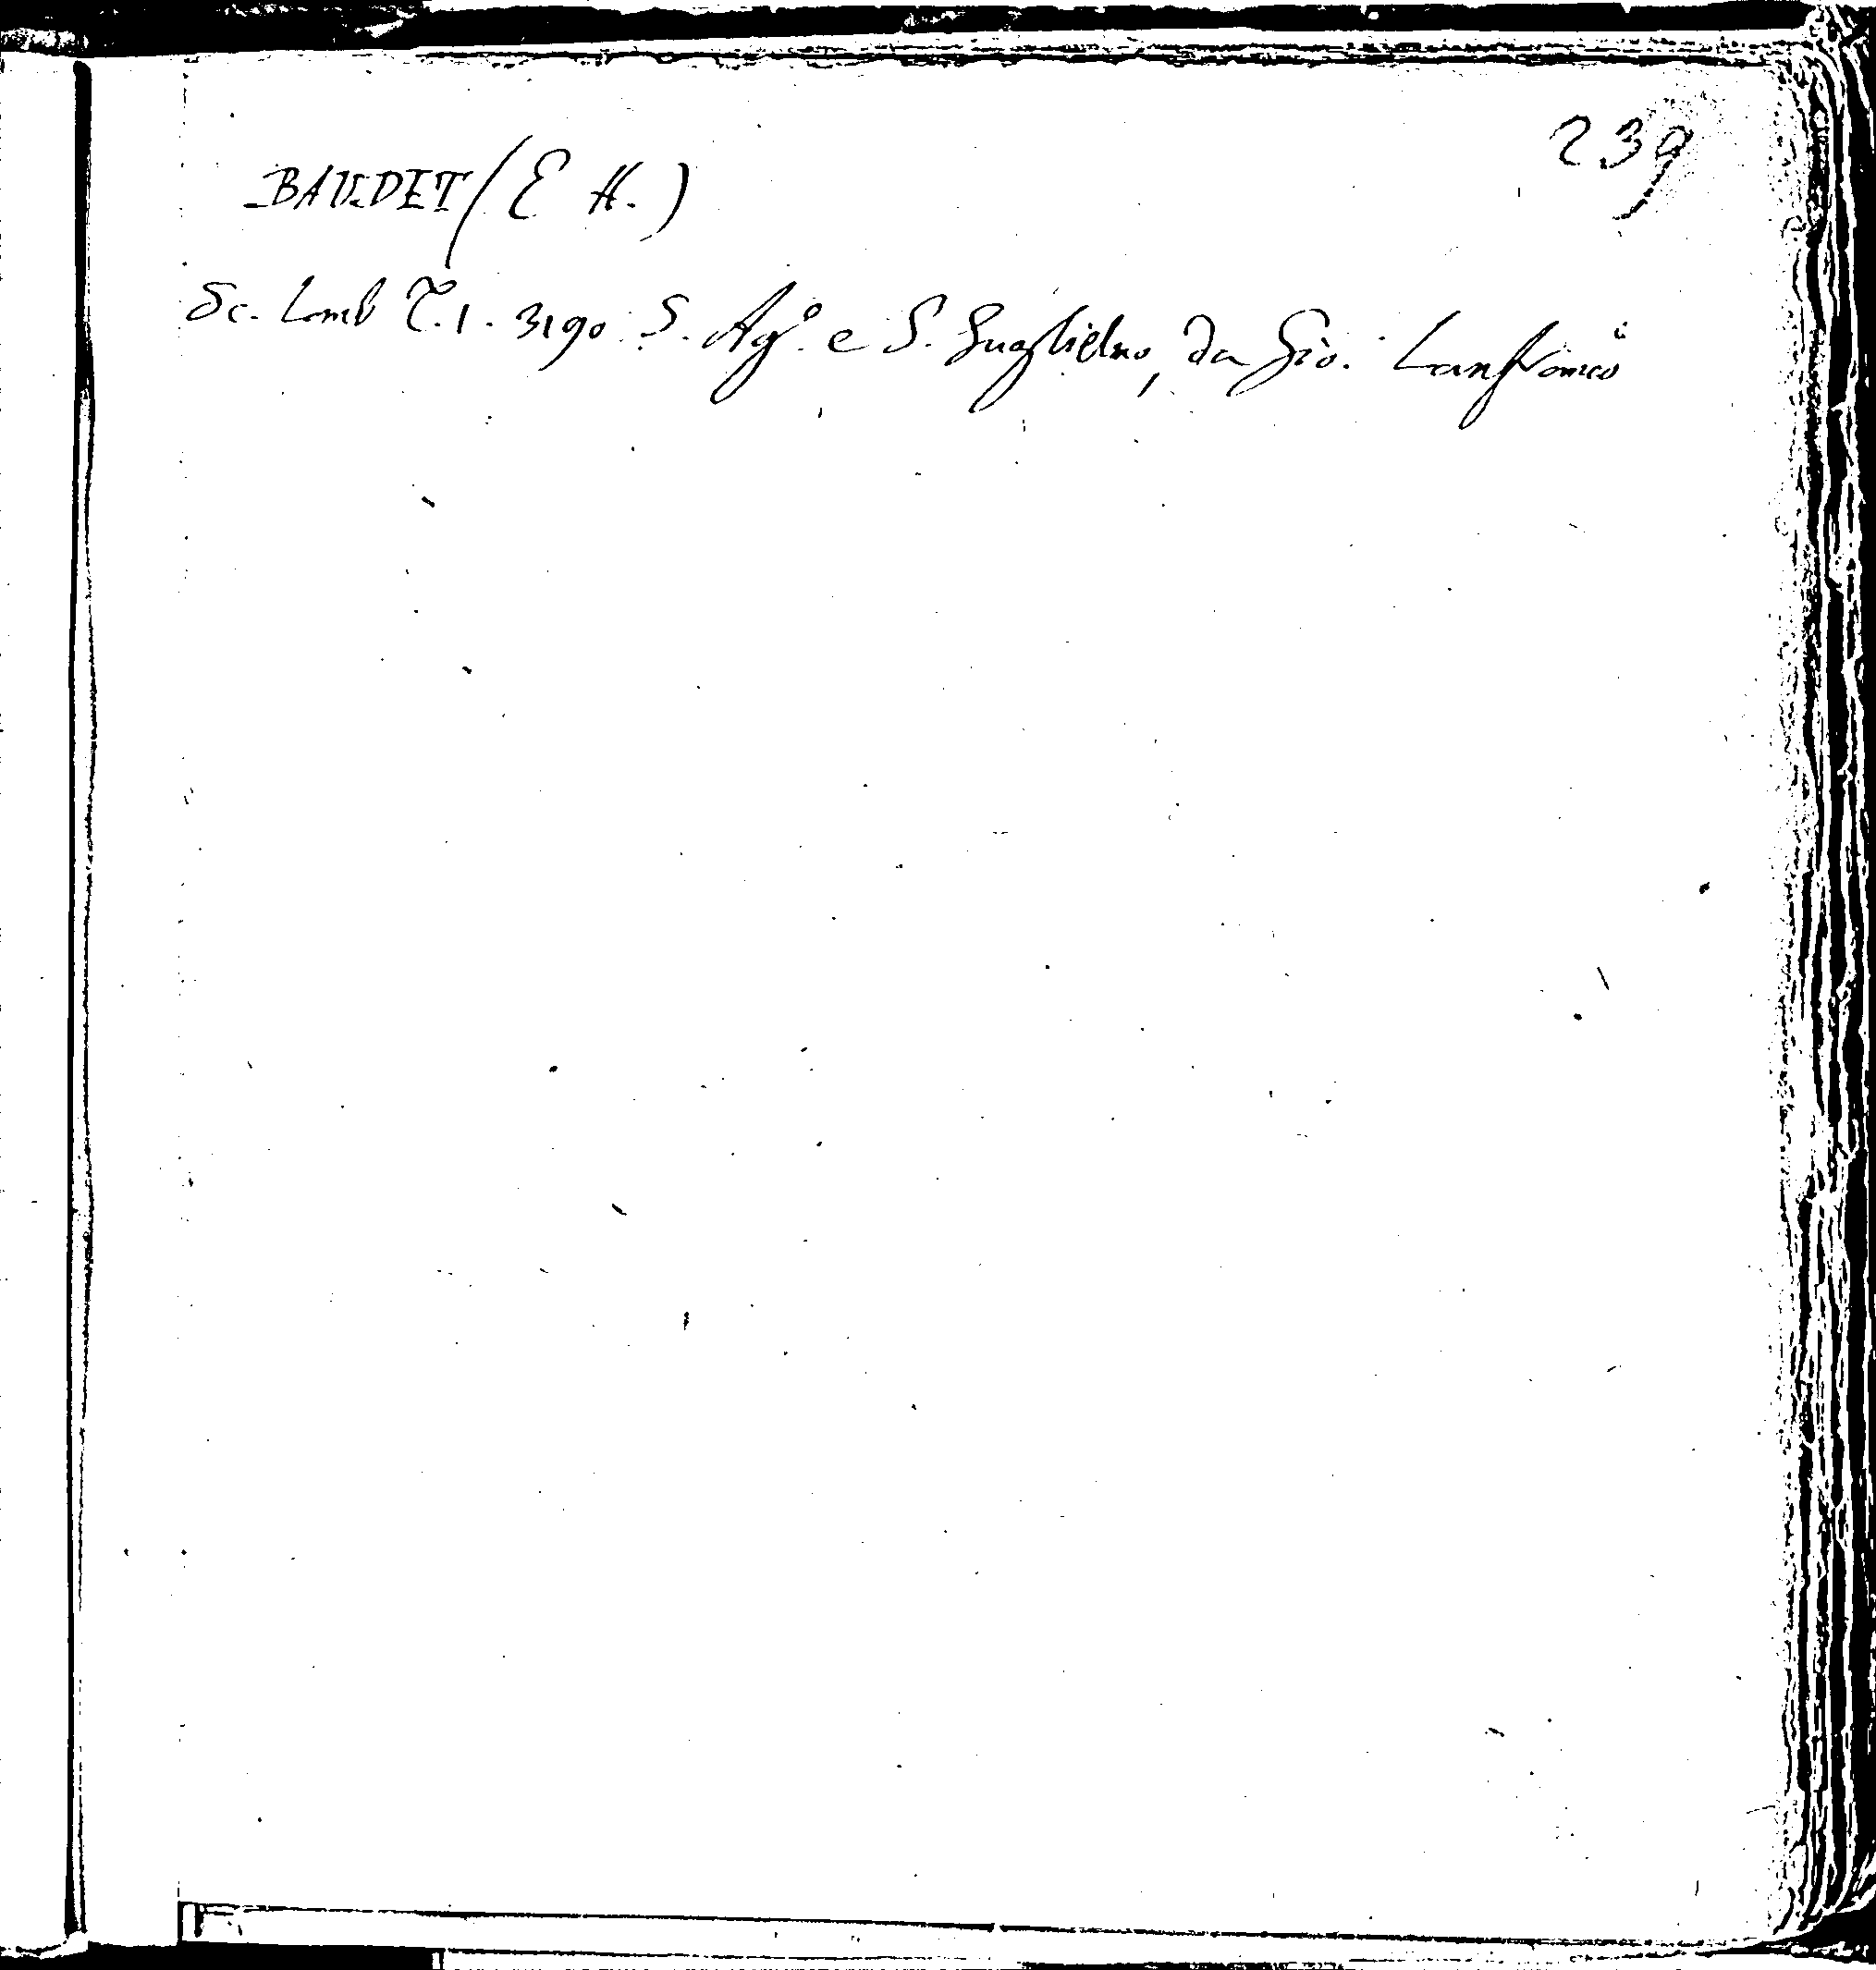 239
BAUDET (E H.)
Sc. Lomb T. 1. 3190 S. Ag.º e S. Guglielmo, da Gio. Lanfranco